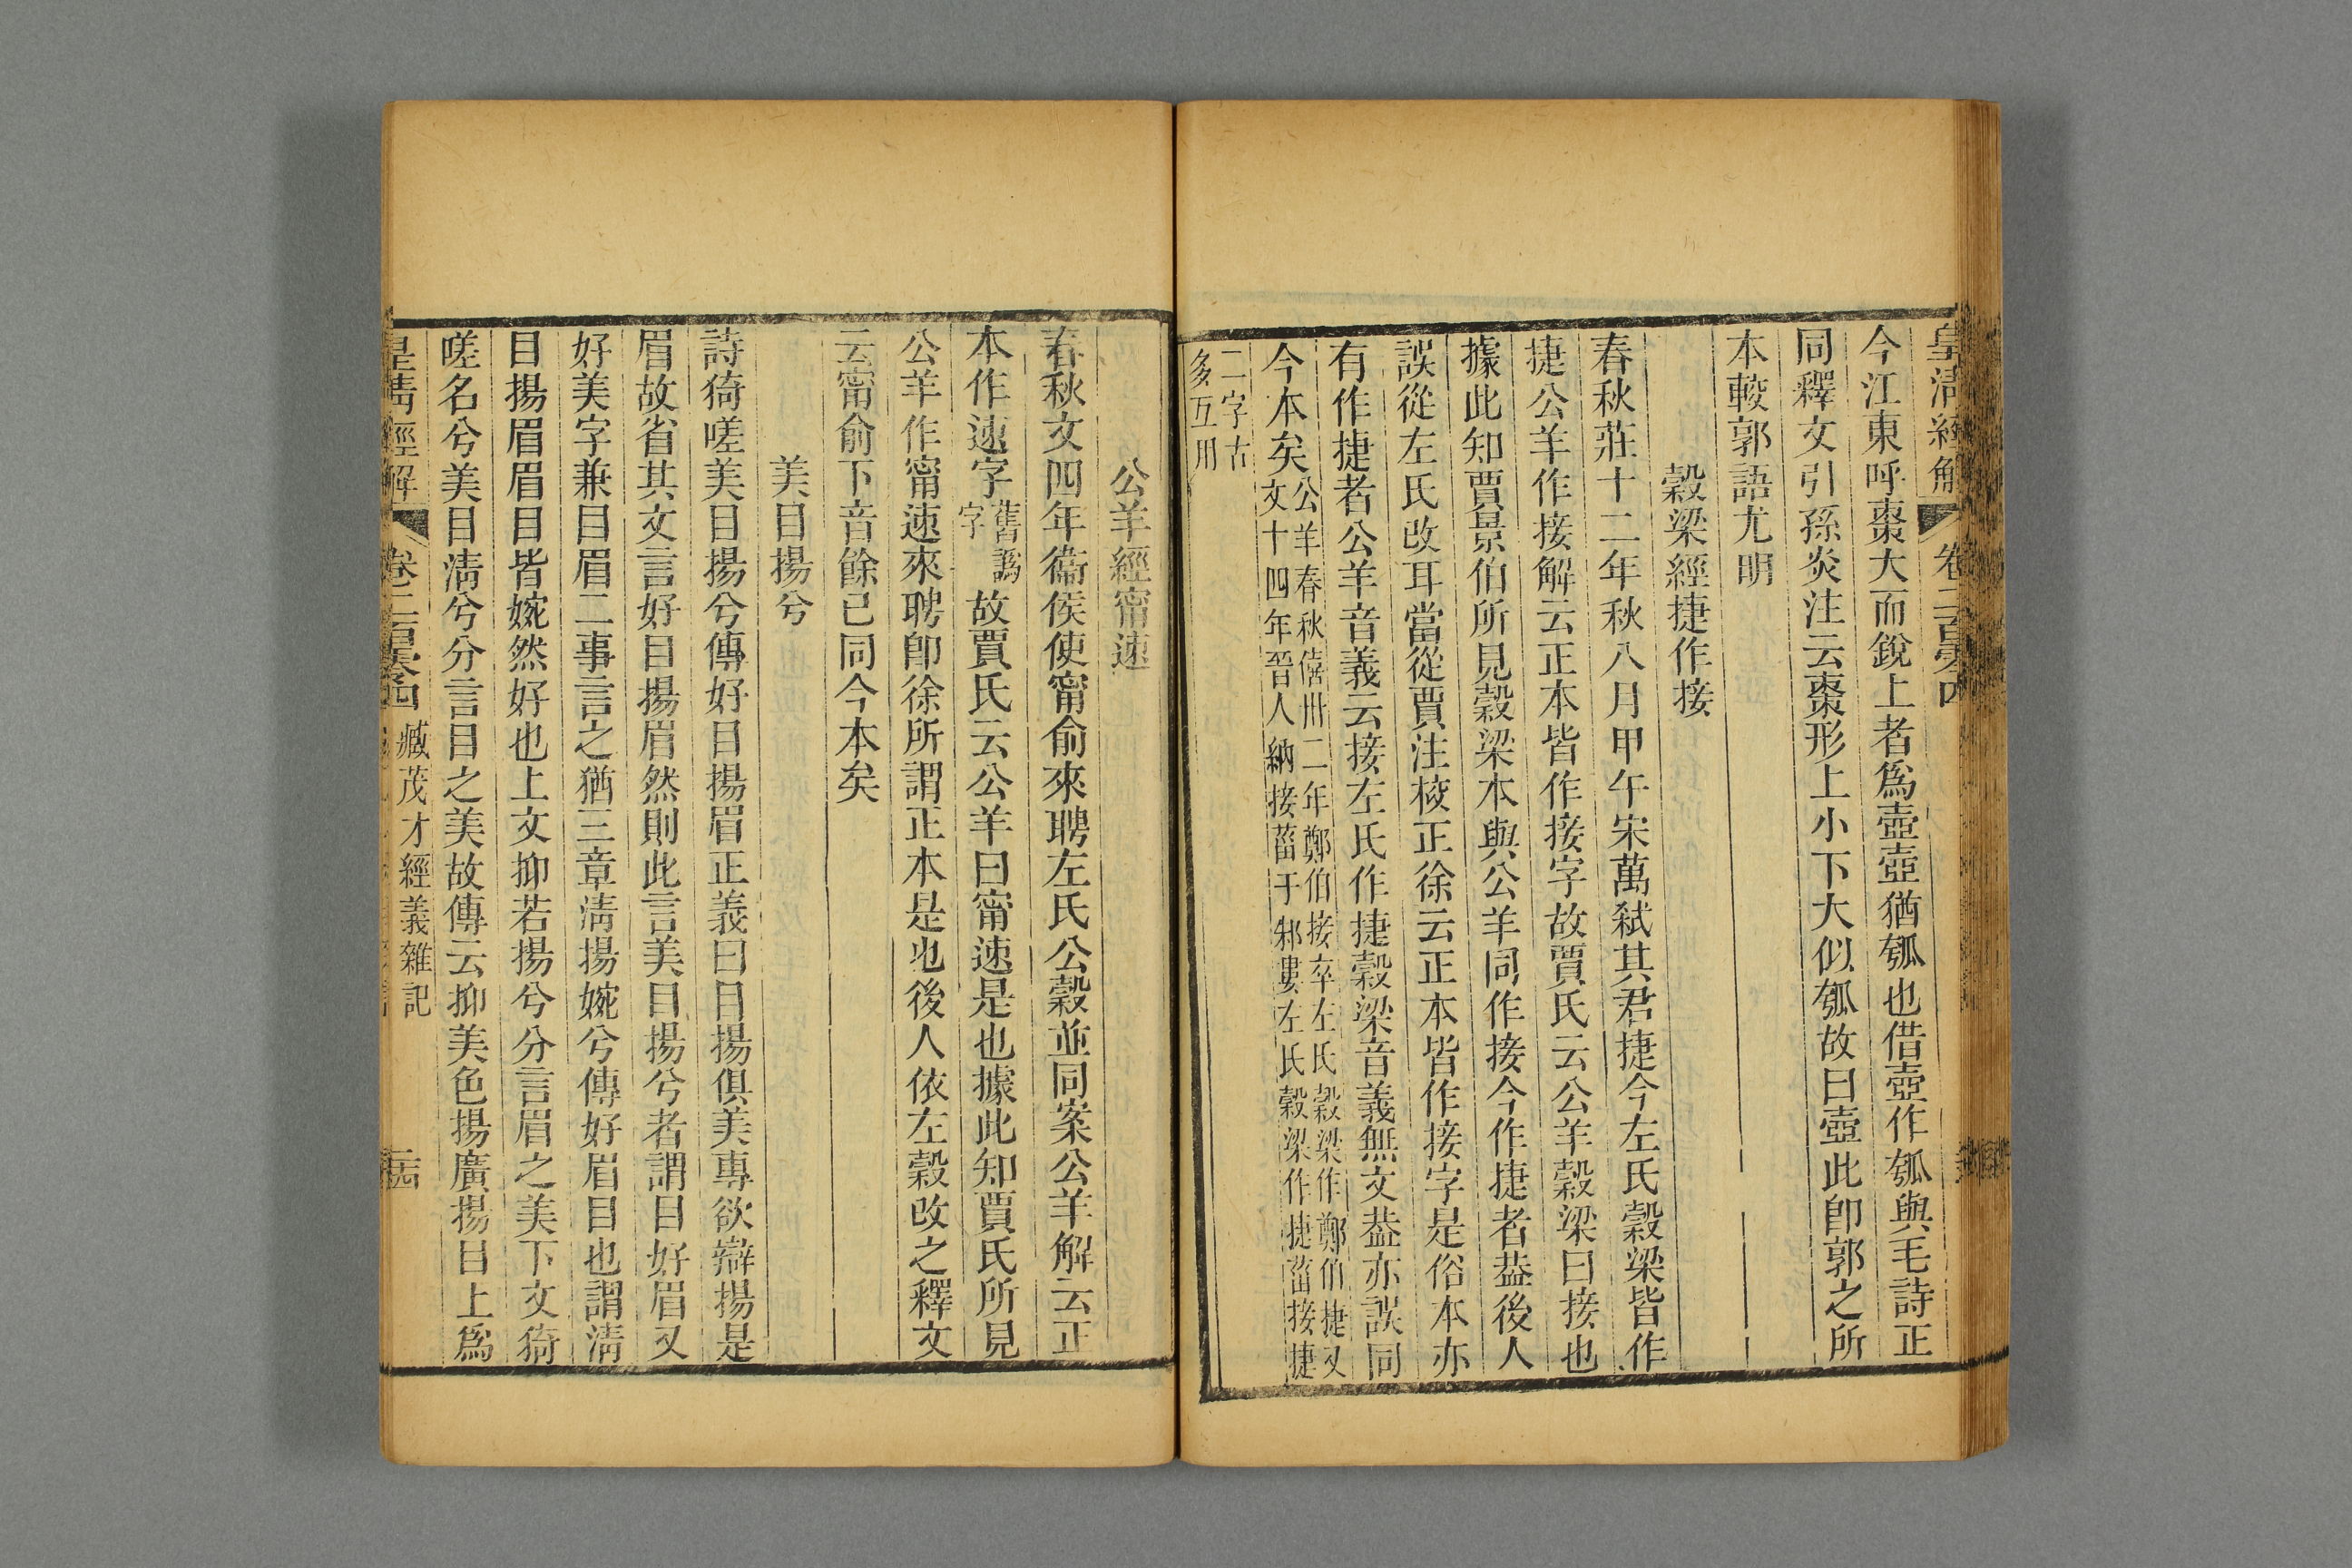 皇清經解
卷二百四
今江東呼棗大而銳上者爲壺壺猶瓠也借壺作瓠與毛詩正
同釋文引孫炎注云棗形上小下大似瓠故曰壺此卽郭之所
本較郭語尤明
穀梁經捷作接
春秋莊十二年秋八月甲午宋萬弒其君捷今左氏穀梁皆作
捷公羊作接解云正本皆作接字故賈氏云公羊穀梁曰接也
據此知賈景伯所見穀梁本與公羊同作接今作捷者葢後人
誤從左氏改耳當從賈注校正徐云正本皆作接字是俗本亦
有作捷者公羊音義云接左氏作捷穀梁音義無文葢亦誤同
今本矣
公羊春秋僖卅二年鄭伯接卒左氏穀梁作鄭伯捷又
文十四年晉人納接菑于邾婁左氏穀梁作捷菑接捷
二字古
多互用
公羊經甯速
春秋文四年衞侯使甯俞來聘左氏公穀並同案公羊解云正
本作速字
舊譌
字
故賈氏云公羊曰甯速是也據此知賈氏所見
公羊作甯速來聘卽徐所謂正本是也後人依左穀改之釋文
云甯俞下音餘已同今本矣
美目揚兮
詩猗嗟美目揚兮傳好目揚眉正義曰目揚俱美專欲辯揚是
眉故省其文言好目揚眉然則此言美目揚兮者謂目好眉又
好美字兼目眉二事言之猶三章淸揚婉兮傳好眉目也謂淸
目揚眉眉目皆婉然好也上文抑若揚兮分言眉之美下文猗
嗟名兮美目淸兮分言目之美故傳云抑美色揚廣揚目上爲
皇清經解
卷二百四
臧茂才經義雜記